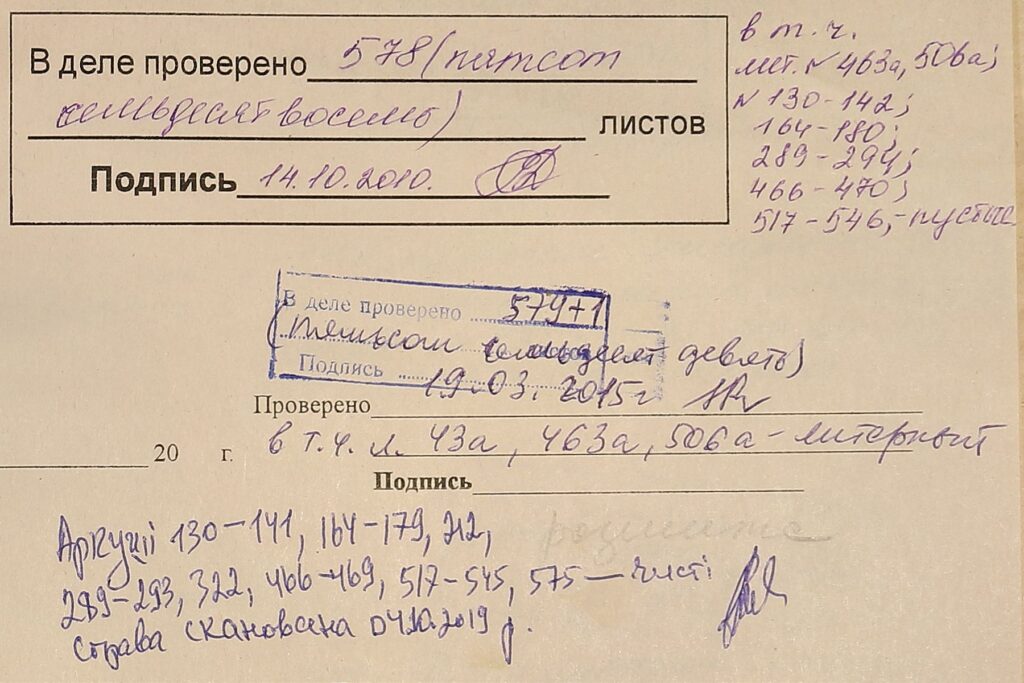 В деле проверено 578 (пятсот
семьдесят восемь) листов
Подпись 14.10.2010.
в т. ч.
лит. № 463а, 506а;
№ 130-142;
164-180;
289-294;
466-470;
517-546,-пустые
В деле проверено 579+1
(пятьсот семьдесят девять)
Подпись 19.03.2015г
Проверено
в т.ч. л. 43а, 463а, 506а-литерный
20 г.
Подпись
Аркуші 130-141, 164-179, 212,
289-293, 322, 466-469, 517-545, 575 — чисті
справа сканована 04.10.2019 р.